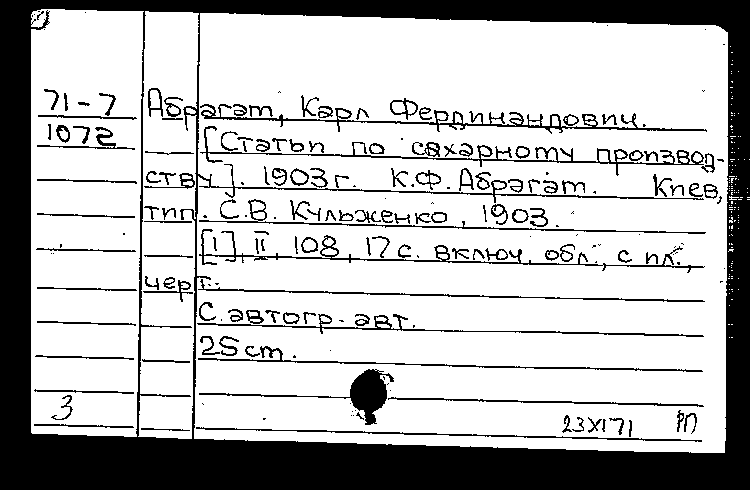 71-7 Абрагат, Карл Фердинандович.
1072 [Статьи по сахарному производ-
ству]. 1903 г. К.Ф. Абрагат. Киев,
тип. С.В. Кульженко, 1903.
[1], II, 108, 17 с. включ. обл., с ил.,
черт.
С автогр. авт.
25 cm.
3 23XI71 РП